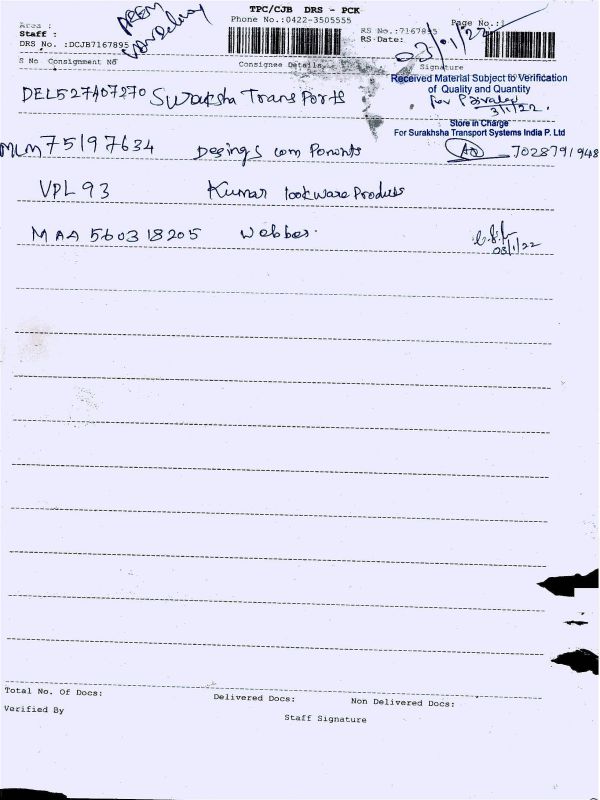 TPC/CJB DRS - PCK
Phone No.:0422-3505555
Page No.:1
Area :
Staff :
RS No.:7167895
DRS No. :DCJB7167895
RS Date:
03/01/22
S No Consignment No
Consignee Details
Signature
Received Material Subject to Verification
of Quality and Quantity
for
3/1/22.
Store in Charge
For Surakhsha Transport Systems India P. Ltd
DEL527407270 Suraksha Transports
MLM75197634 Desings com Ponents
7028791948
VPL93 Kumar Cookware Products
MAA 560318205 Webber
03/1/22
Total No. Of Docs:
Delivered Docs:
Non Delivered Docs:
Verified By
Staff Signature